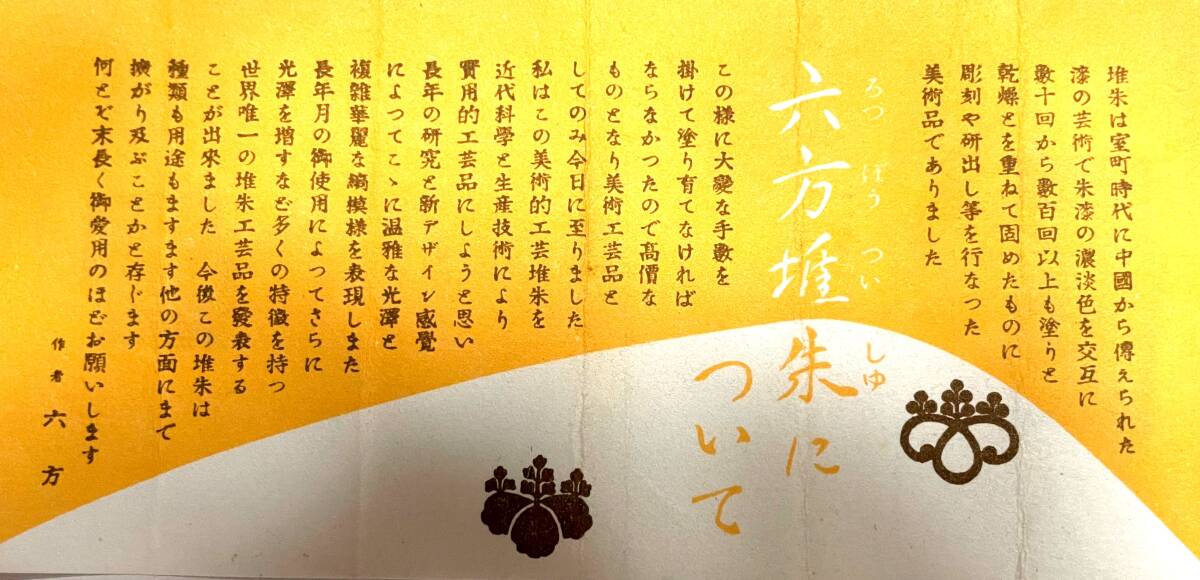 堆朱は室町時代に中國から傳えられた
漆の芸術で朱漆の濃淡色を交互に
數十回から數百回以上も塗りと
乾燥とを重ねて固めたものに
彫刻や研出し等を行なつた
美術品でありました
六方堆朱に
ろつぽうついしゆ
ついて
この様に大變な手數を
掛けて塗り育てなければ
ならなかつたので高價な
ものとなり美術工芸品と
してのみ今日に至りました
私はこの美術的工芸堆朱を
近代科學と生産技術により
實用的工芸品にしようと思い
長年の研究と新デザイン感覺
によつてこゝに温雅な光澤と
複雑華麗な縞模様を表現しまた
長年月の御使用によつてさらに
光澤を増すなど多くの特徴を持つ
世界唯一の堆朱工芸品を發表する
ことが出來ました 今後この堆朱は
種類も用途もますます他の方面にまで
擴がり及ぶことかと存じます
何とぞ末長く御愛用のほどお願いします
作者 六方